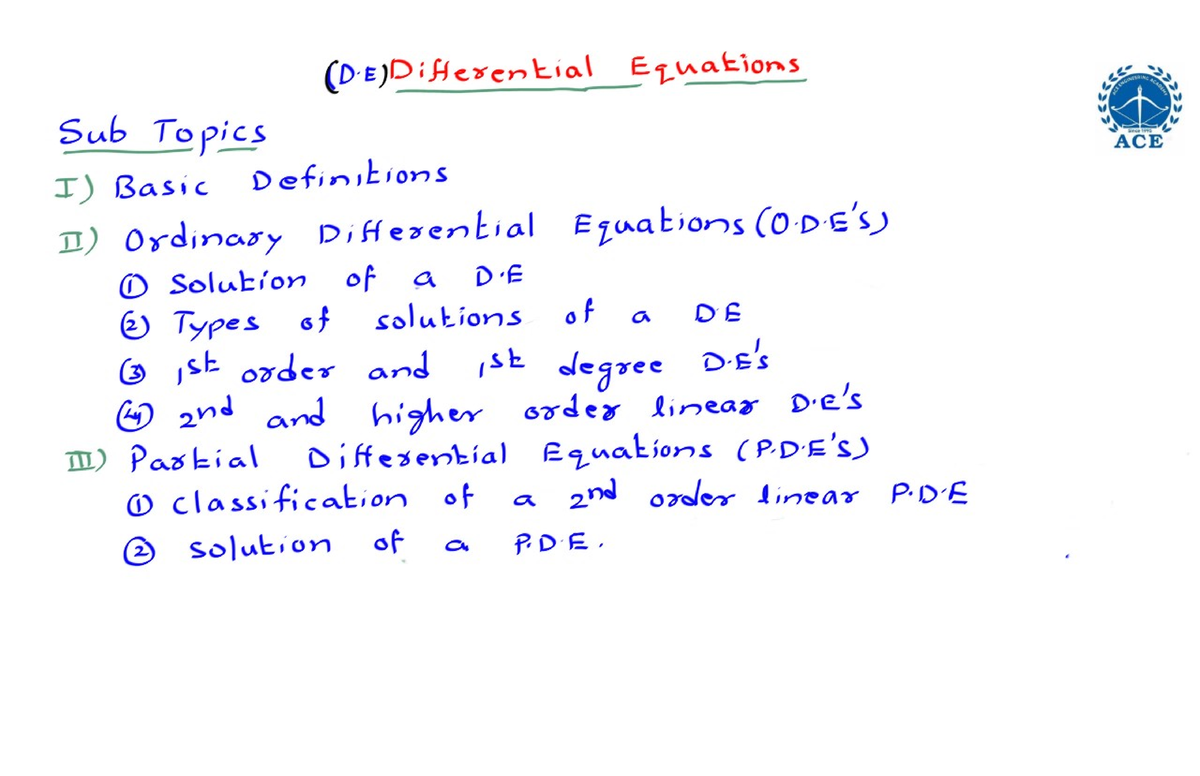 (D.E) Differential Equations
Sub Topics
I) Basic Definitions
II) Ordinary Differential Equations (O.D.E's)
① Solution of a D.E
② Types of solutions of a D.E
③ 1st order and 1st degree D.E's
④ 2nd and higher order linear D.E's
III) Partial Differential Equations (P.D.E's)
① classification of a 2nd order linear P.D.E
② solution of a P.D.E.
ACE ENGINEERING ACADEMY
Since 1995
ACE